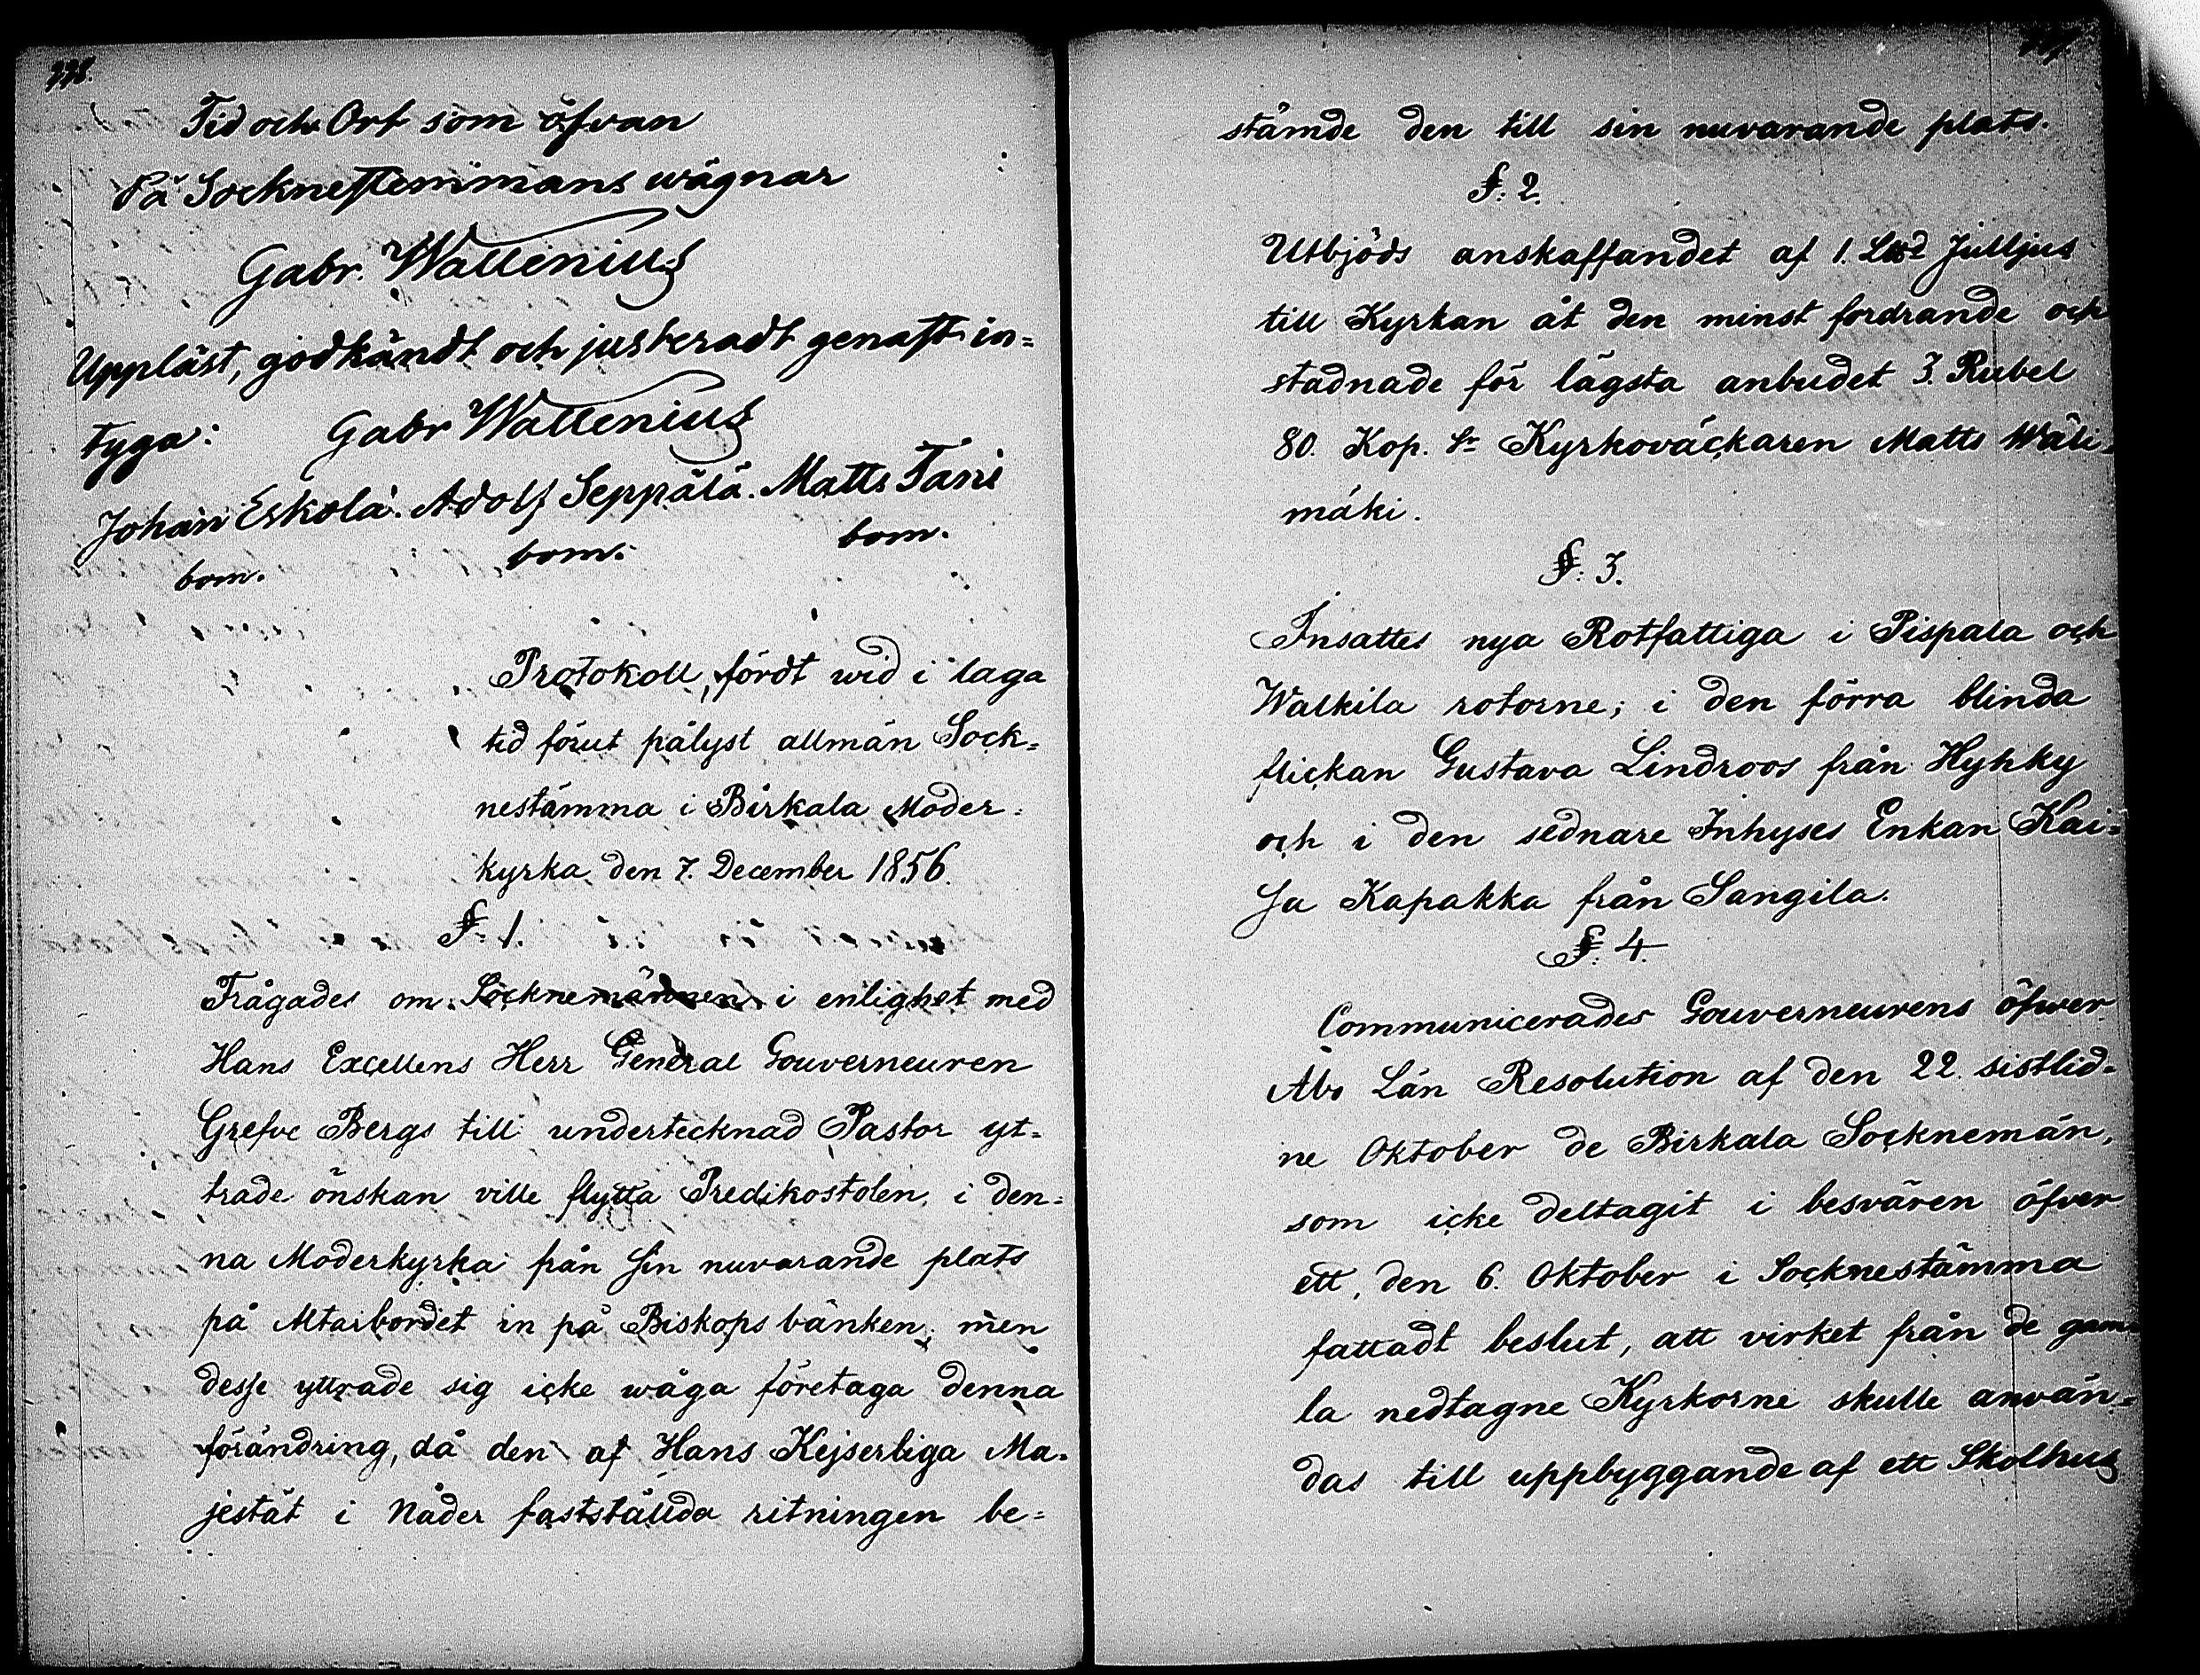 778.
Tid och Ort som ofvan
På Sockne Stemmans wägnar
Gabr. Wallenius
Uppläst, godkändt och justeradt genast in-
tyga: Gabr Wallenius
Johan Eskola. Adolf Seppälä. Matts Tani
bom. bom. bom.
Protokoll, fördt wid i laga
tid förut pålyst allmän Sock-
nestämma i Birkala Moder-
kyrka den 7. December 1856.
§. 1.
Frågades om Socknemännen i enlighet med
Hans Excellens Herr General Gouverneuren
Grefve Bergs till undertecknad Pastor yt-
trade önskan ville flytta Predikostolen i den-
na Moderkyrka från sin nuvarande plats
på Altarbordet in på Biskops bänken; men
desse yttrade sig icke wåga företaga denna
förändring, då den af Hans Kejserliga Ma-
jestät i Nåder fastställda ritningen be-
stämde den till sin nuvarande plats.
§. 2.
Utbjöds anskaffandet af 1. L℔d Julljus
till Kyrkan åt den minst fordrande och
stadnade för lägsta anbudet 3. Rubel
80. Kop. Sr Kyrkoväckaren Matts Wäli-
mäki.
§. 3.
Insattes nya Rotfattiga i Pispala och
Walkila rotorne; i den förra blinda
flickan Gustava Lindroos från Hyhky
och i den sednare Inhyses Enkan Kai-
sa Kapakka från Sangila.
§. 4.
Communicerades Gouverneurens öfwer
Åbo Län Resolution af den 22 sistlid-
ne Oktober de Birkala Socknemän,
som icke deltagit i besvären öfver
ett, den 6. Oktober i Socknestämma
fattadt beslut, att virket från de gam-
la nedtagne Kyrkorne skulle använ-
das till uppbyggande af ett Skolhus